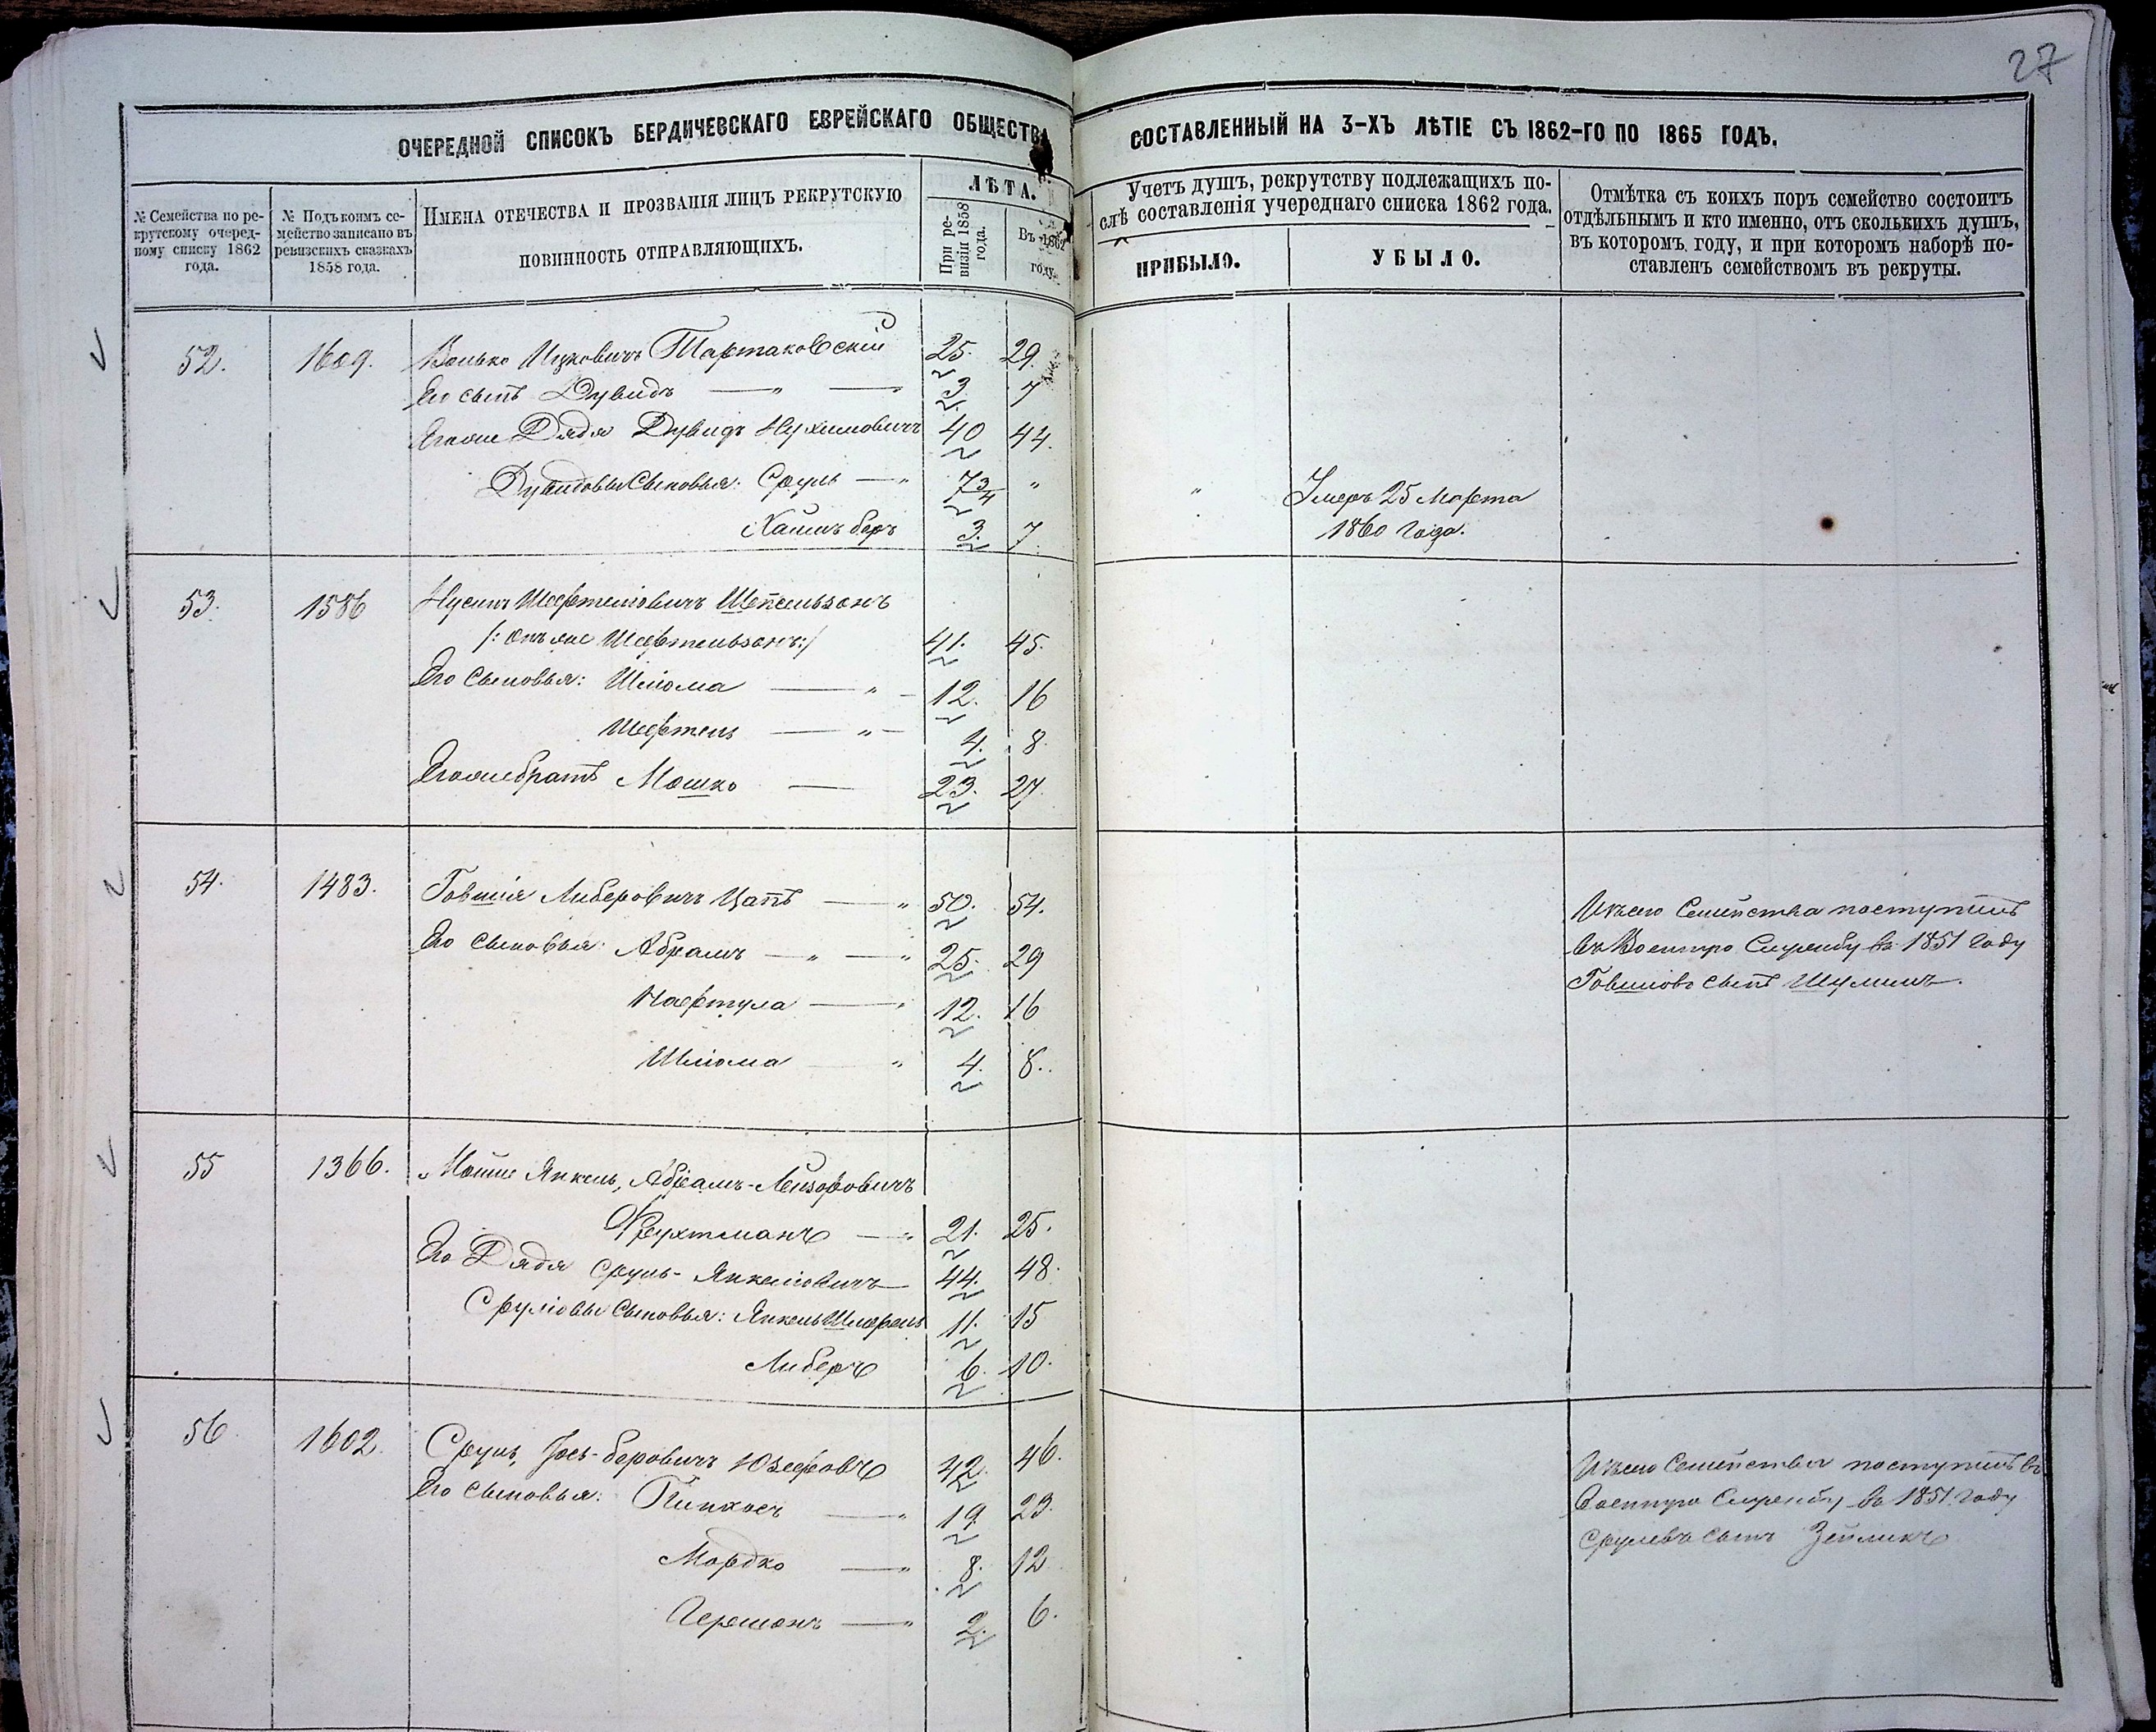 27
ОЧЕРЕДНОЙ СПИСОКЪ БЕРДИЧЕВСКАГО ЕВРЕЙСКАГО ОБЩЕСТВА СОСТАВЛЕННЫЙ НА 3-ХЪ ЛѢТІЕ СЪ 1862-ГО ПО 1865 ГОДЪ.
№ Семейства по ре-
крутскому очеред-
ному списку 1862
года.
№ Подъ коимъ се-
мейство записано въ
ревизскихъ сказкахъ
1858 года.
ИМЕНА ОТЕЧЕСТВА И ПРОЗВАНІЯ ЛИЦЪ РЕКРУТСКУЮ
ПОВИННОСТЬ ОТПРАВЛЯЮЩИХЪ.
ЛѢТА.
При ре-
визіи 1858
года.
Въ 1862
году.
Учетъ душъ, рекрутству подлежащихъ по-
слѣ составленія учереднаго списка 1862 года.
ПРИБЫЛО.
УБЫЛО.
Отмѣтка съ коихъ поръ семейство состоитъ
отдѣльнымъ и кто именно, отъ сколькихъ душъ,
въ котором году, и при которомъ наборѣ по-
ставленъ семействомъ въ рекруты.
52. 1609. Волько Ицковичъ Тартаковскій 25. 29.
Его сынъ Дувидъ — „ — 3. 7
Его же Дядя Дувидъ Нухимовичъ 40 44.
Дувидовы Сыновья: Сруль — „ 7 3/4 „ „ Умеръ 25 Марта
Хаимъ беръ 3. 7 1860 года.
53. 1586 Нусинъ Шефтелiовичъ Шепсельзонъ
/: онъ же Шефтельзонъ :/ 41. 45.
Его Сыновья: Шліома — „ — 12. 16
Шефтель — „ — 4. 8.
Его же братъ Мошко — 23. 27.
54. 1483. Говшія Либеровичъ Цапъ — „ 50. 54. Изъ сего Семейства поступилъ
Его Сыновья: Абрамъ — „ — „ 25. 29 въ Военную Службу въ 1851 году
Нафтула — „ 12. 16 Говшіовъ сынъ Шулимъ.
Шліома — „ 4. 8.
55 1366. Мойше Янкель, Абрамъ-Лейзоровичъ
Фрухтманъ — „ 21. 25.
Его Дядя Сруль-Янкеліовичъ 44. 48.
Сруліовы Сыновья: Янкель Шмерель 11. 15
Либеръ 6. 10.
56 1602. Сруль, Іось-беровичъ Юзефовъ 42. 46. Изъ сего Семейства поступилъ въ
Его Сыновья: Пинхосъ — „ 19. 23. Военную Службу въ 1851 году
Мордко — „ 8. 12 Срулевъ сынъ Зейликъ
Гершонъ — „ 2. 6.